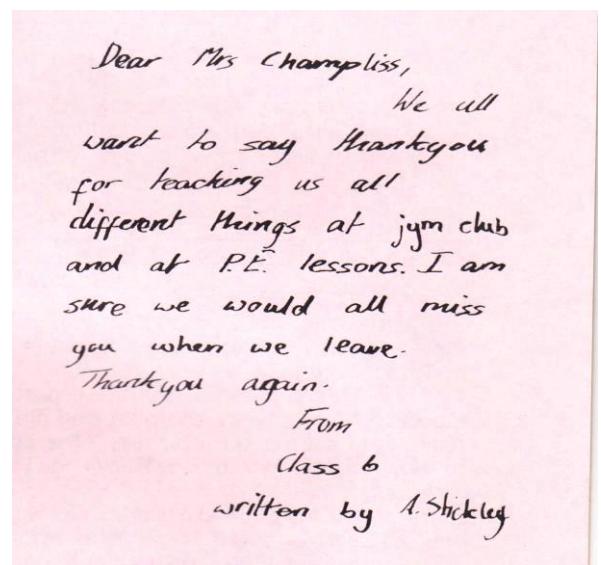 Dear Mrs Champliss,
We all
want to say thankyou
for teaching us all
different things at jym club
and at P.E. lessons. I am
sure we would all miss
you when we leave.
Thankyou again.
From
Class 6
written by A. Stickley